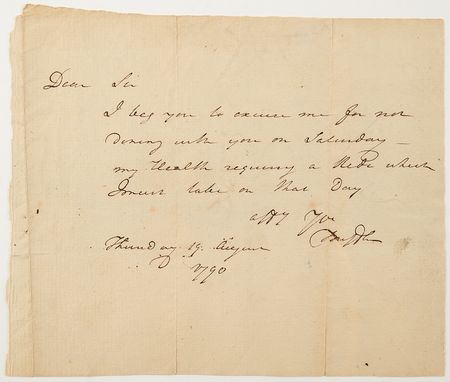 Dear Sir
I beg you to excuse me for not
dining with you on Saturday –
my Health requiring a Ride which
I must take on that Day
affy Yrs
Thursday 19. August
D 1790